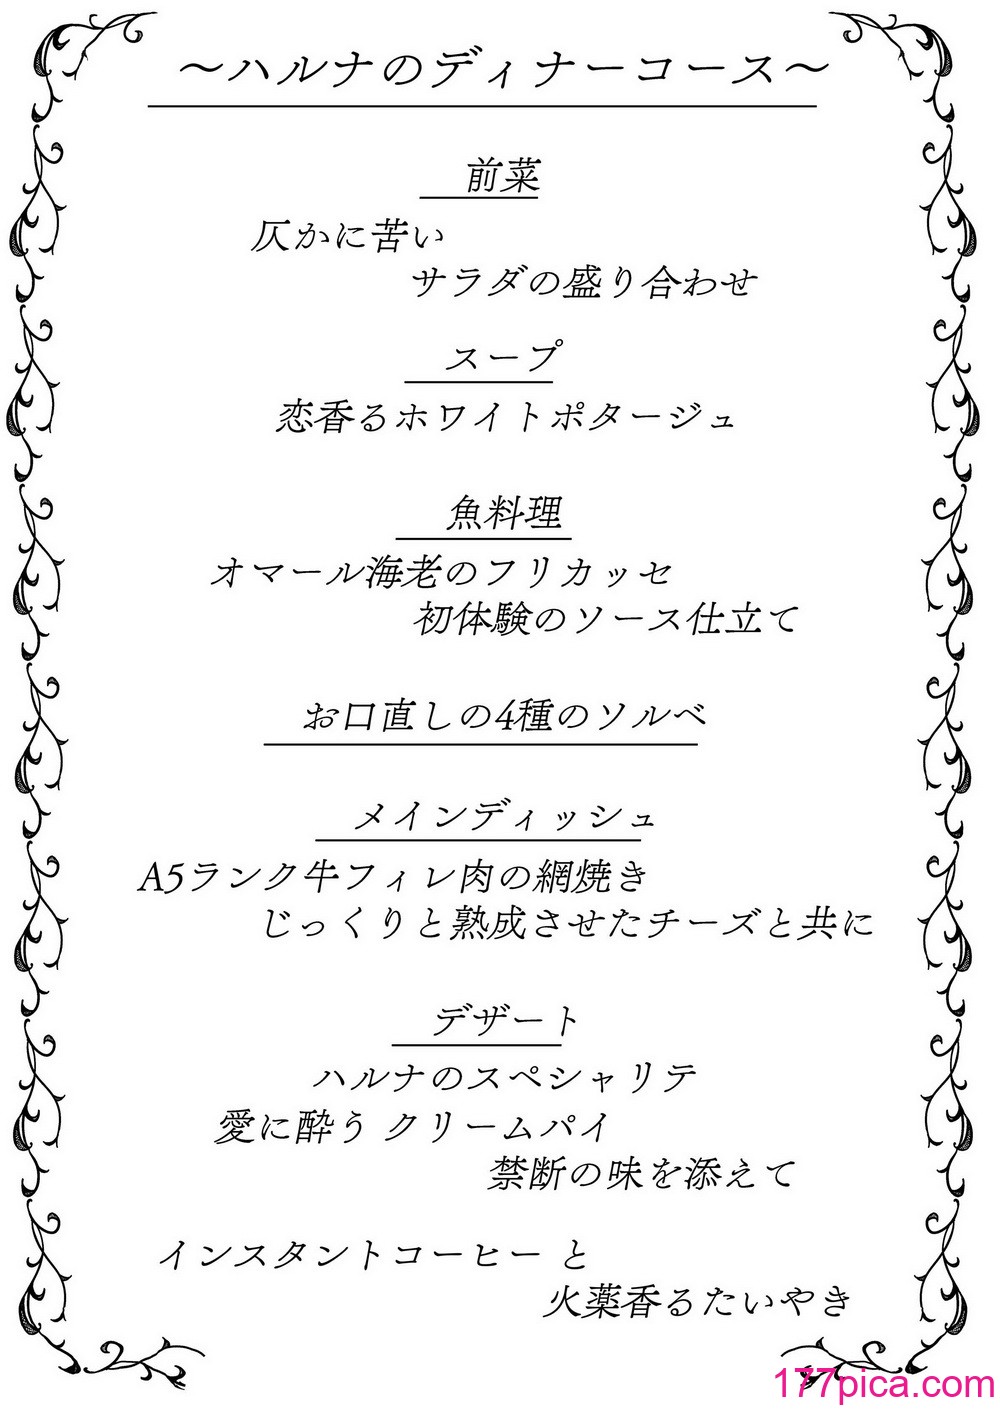 ～ハルナのディナーコース～
前菜
仄かに苦い
サラダの盛り合わせ
スープ
恋香るホワイトポタージュ
魚料理
オマール海老のフリカッセ
初体験のソース仕立て
お口直しの4種のソルベ
メインディッシュ
A5ランク牛フィレ肉の網焼き
じっくりと熟成させたチーズと共に
デザート
ハルナのスペシャリテ
愛に酔う クリームパイ
禁断の味を添えて
インスタントコーヒー と
火薬香るたいやき
177pica.com